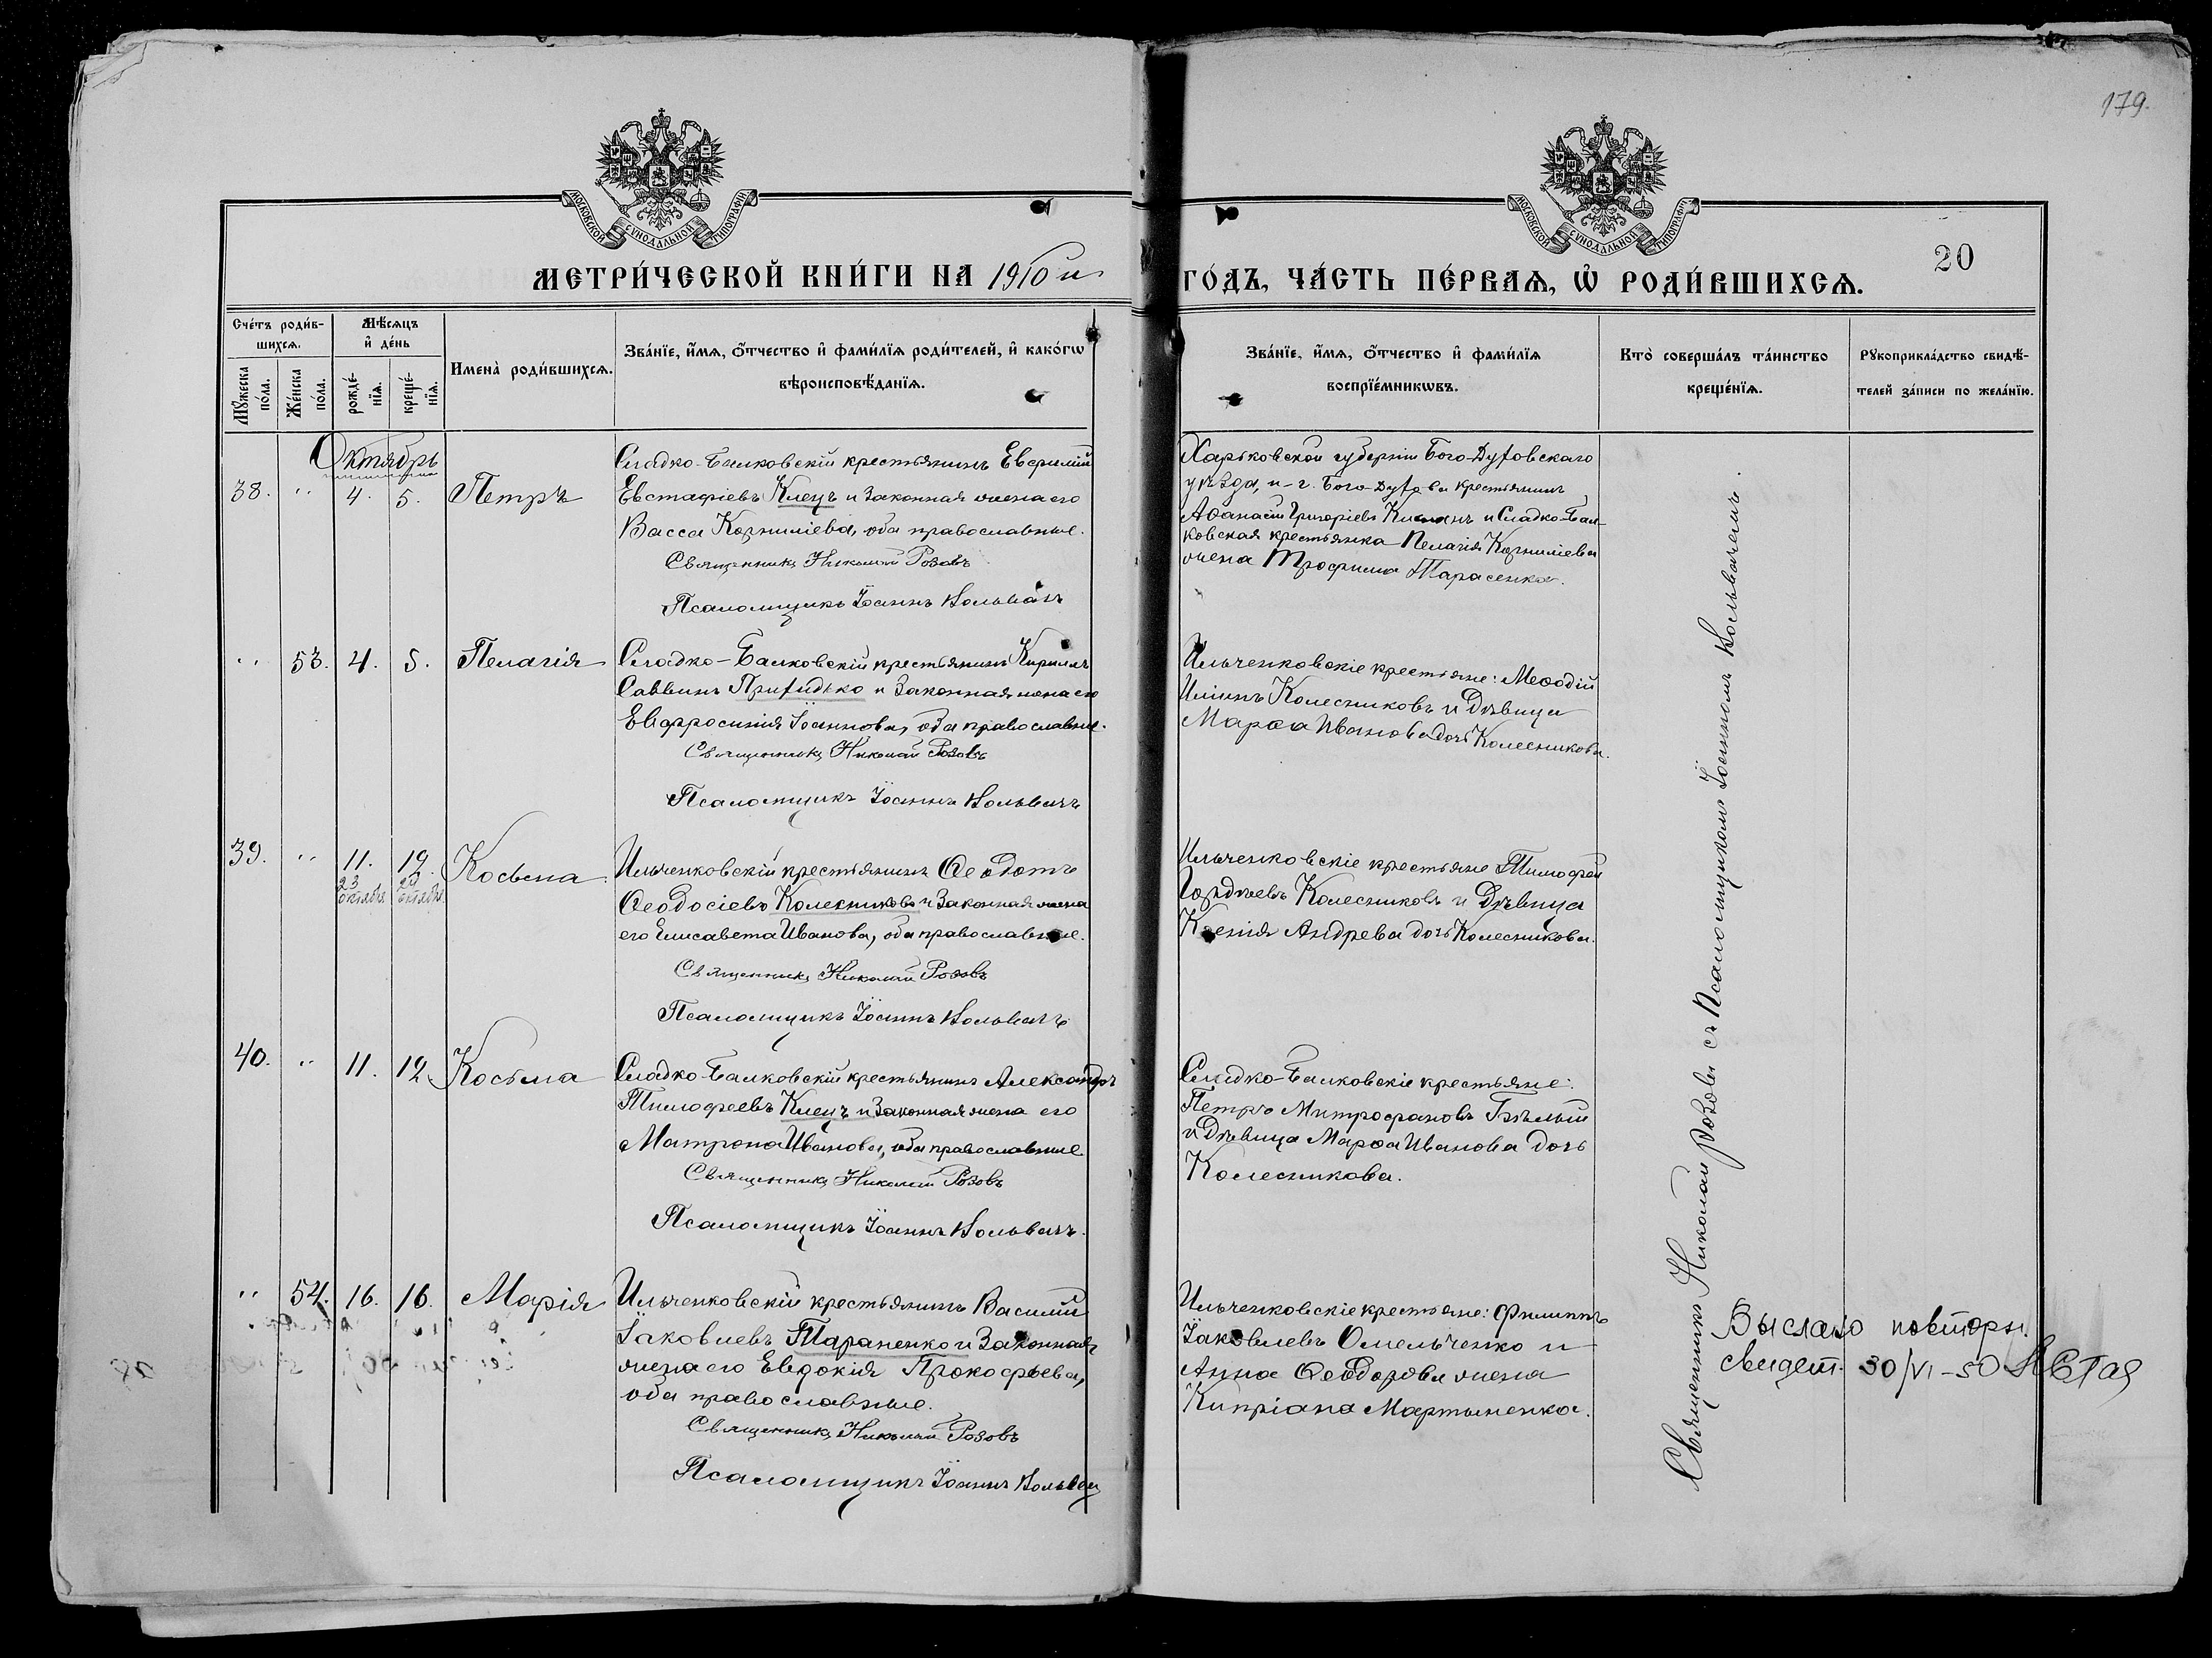 179.
МОСКОВСКОЙ СУНОДАЛЬНОЙ ТИПОГРАФІИ
МОСКОВСКОЙ СУНОДАЛЬНОЙ ТИПОГРАФІИ
20
МЕТРИ́ЧЕСКОЙ КНИ́ГИ НА 1910 й
ГО́ДЪ, ЧА́СТЬ ПЕ́РВАѦ, Ѡ҆ РОДИ́ВШИХСѦ.
Сче́тъ роди́в-
шихсѧ.
Мѣ́сѧцъ
и҆ де́нь
Мꙋ́жеска по́ла.
Же́нска по́ла.
рожде́-
нїѧ.
креще́-
нїѧ.
Имена̀ роди́вшихсѧ.
Зва́нїе, и҆́мѧ, ѻ҆́тчество и҆ фами́лїѧ роди́телей, и҆ како́гѡ
вѣроисповѣ́данїѧ.
Зва́нїе, и҆́мѧ, ѻ҆́тчество и҆ фами́лїѧ
воспрїе́мникѡвъ.
Кто̀ соверша́лъ та́инство
креще́нїѧ.
Рꙋкоприкла́дство свидѣ́-
телей за́писи по жела́нїю.
Октябрь
38. " 4. 5. Петръ
Сладко-Балковскій крестьянинъ Евѳимій
Евстафіевъ Клецъ и законная жена его
Васса Корниліева, оба православные.
Священникъ Николай Розовъ
Псаломщикъ Іоаннъ Кольвачъ
Харьковской губерніи Бого-Духовскаго
уѣзда, и - г. Бого-Духова крестьянинъ
Аѳанасій Григоріевъ и Сладко-Бал-
ковская крестьянка Пелагія Корниліева
жена Трофима Тарасенка.
" 53. 4. 5. Пелагія
Сладко-Балковскій крестьянинъ Кириллъ
Саввинъ Прихидько и законная жена его
Евфросинія Іоаннова, оба православные.
Священникъ Николай Розовъ
Псаломщикъ Іоаннъ Кольвачъ
Ильченковскіе крестьяне: Меѳодій
Иліинъ Колесниковъ и дѣвица
Марѳа Иванова дочь Колесникова.
39. " 11. 12. Косьма
23 октября 24 октября
Ильченковскій крестьянинъ Ѳеодотъ
Ѳеодосіевъ Колесниковъ и законная жена
его Елисавета Иванова, оба православные.
Священникъ Николай Розовъ
Псаломщикъ Іоаннъ Кольвачъ
Ильченковскіе крестьяне Тимофей
Гордѣевъ Колесниковъ и дѣвица
Ксенія Андрева дочь Колесникова.
40. " 11. 12. Косьма
Сладко-Балковскій крестьянинъ Александръ
Тимофеевъ Клецъ и законная жена его
Матрона Иванова, оба православные
Священникъ Николай Розовъ
Псаломщикъ Іоаннъ Кольвачъ.
Сладко-Балковскіе крестьяне:
Петръ Митрофановъ Бѣлый
и дѣвица Марѳа Иванова дочь
Колесникова.
" 54. 16. 16. Марія
Ильченковскій крестьянинъ Василій
Іаковлевъ Тараненко и законная
жена его Евдокія Прокофьева,
оба православные.
Священникъ Николай Розовъ
Псаломщикъ Іоаннъ Кольвач
Ильченковскіе крестьяне: Филиппъ
Іаковлевъ Омельченко и
Анна Ѳеодорова жена
Кипріана Мартыненка.
Священникъ Николай Розовъ съ Псаломщикомъ Іоанномъ Кольвачемъ.
Выслано повторн.
свидет. 30/VI-50